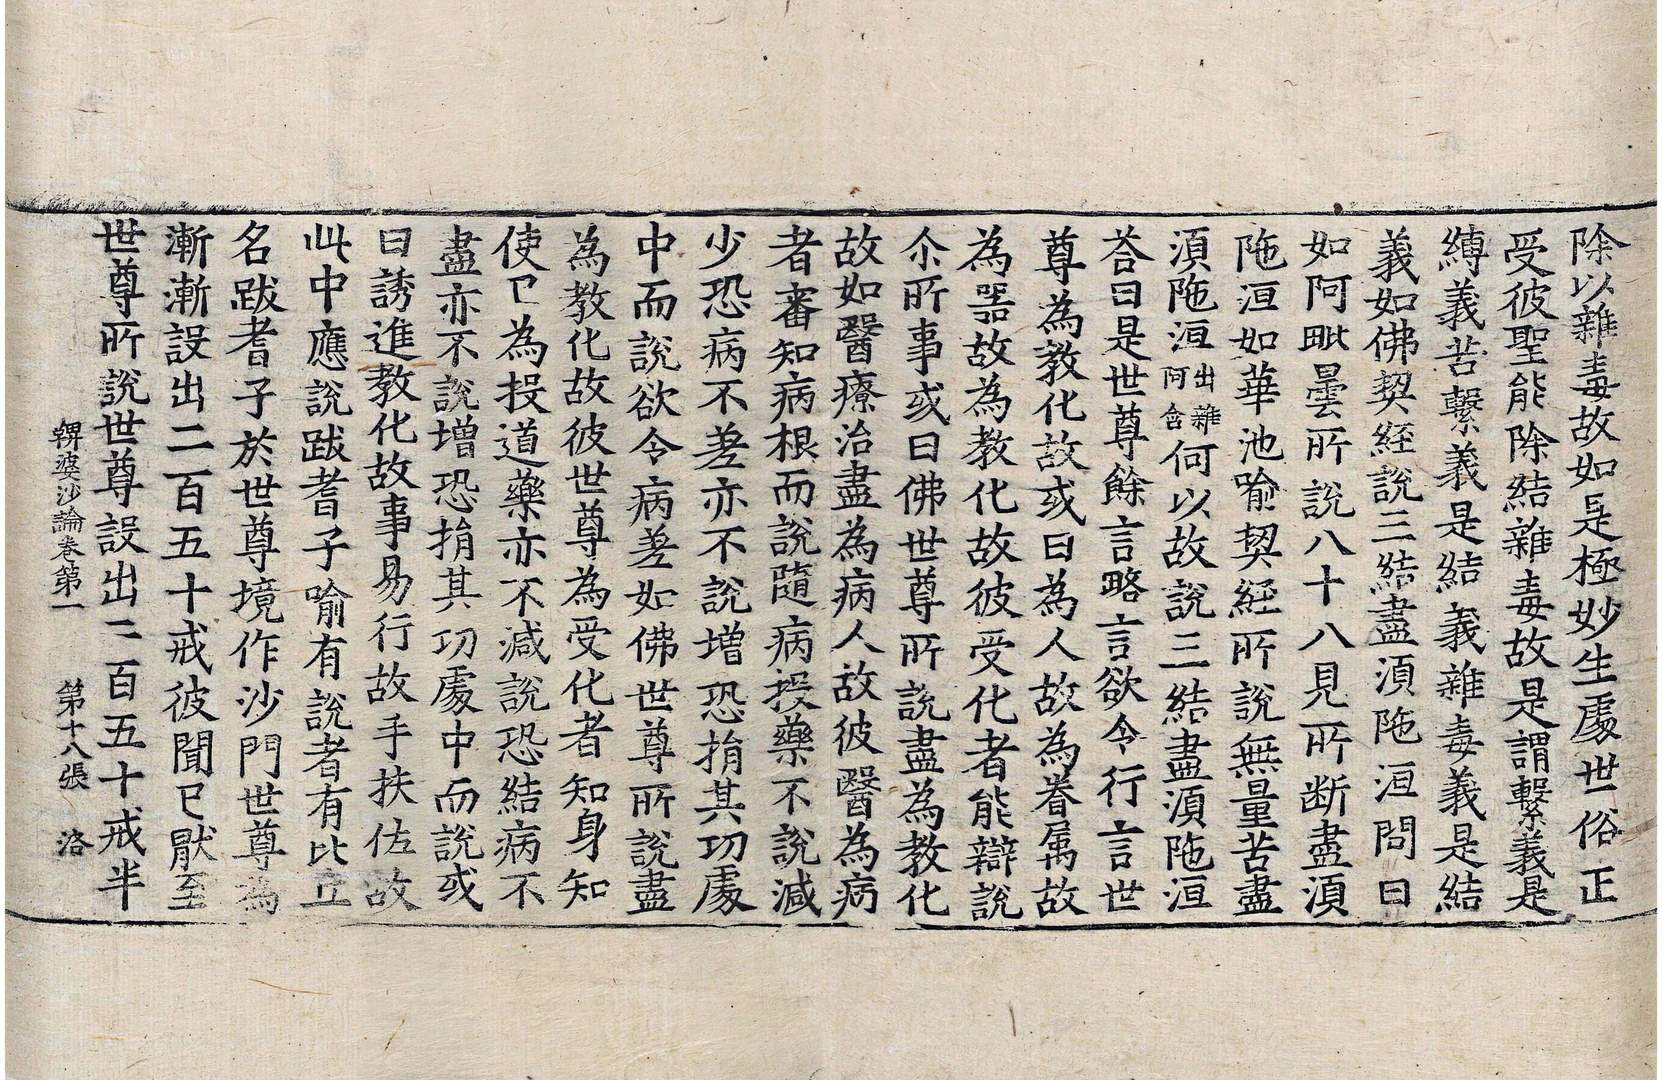 除以雜毒故如是極妙生處世俗正
受彼聖能除結雜毒故是謂繫義是
縛義苦繫義是結義雜毒義是結
義如佛契經說三結盡須陁洹問曰
如阿毗曇所說八十八見所断盡須
陁洹如華池喻契經所說無量苦盡
須陁洹出雜阿含何以故說三結盡須陁洹
荅曰是世尊餘言略言欲令行言世
尊為教化故或曰為人故為眷属故
為器故為教化故彼受化者能辯說
尒所事或曰佛世尊所說盡為教化
故如醫療治盡為病人故彼醫為病
者審知病根而說隨病投藥不說減
少恐病不差亦不說增恐捐其功處
中而說欲令病差如佛世尊所說盡
為教化故彼世尊為受化者知身知
使已為投道藥亦不減說恐結病不
盡亦不說增恐捐其功處中而說或
曰誘進教化故事易行故手扶佐故
此中應說跋耆子喻有說者有比丘
名跋耆子於世尊境作沙門世尊為
漸漸設出二百五十戒彼聞已猒至
世尊所說世尊設出二百五十戒半
鞞婆沙論卷第一 第十八張 洛